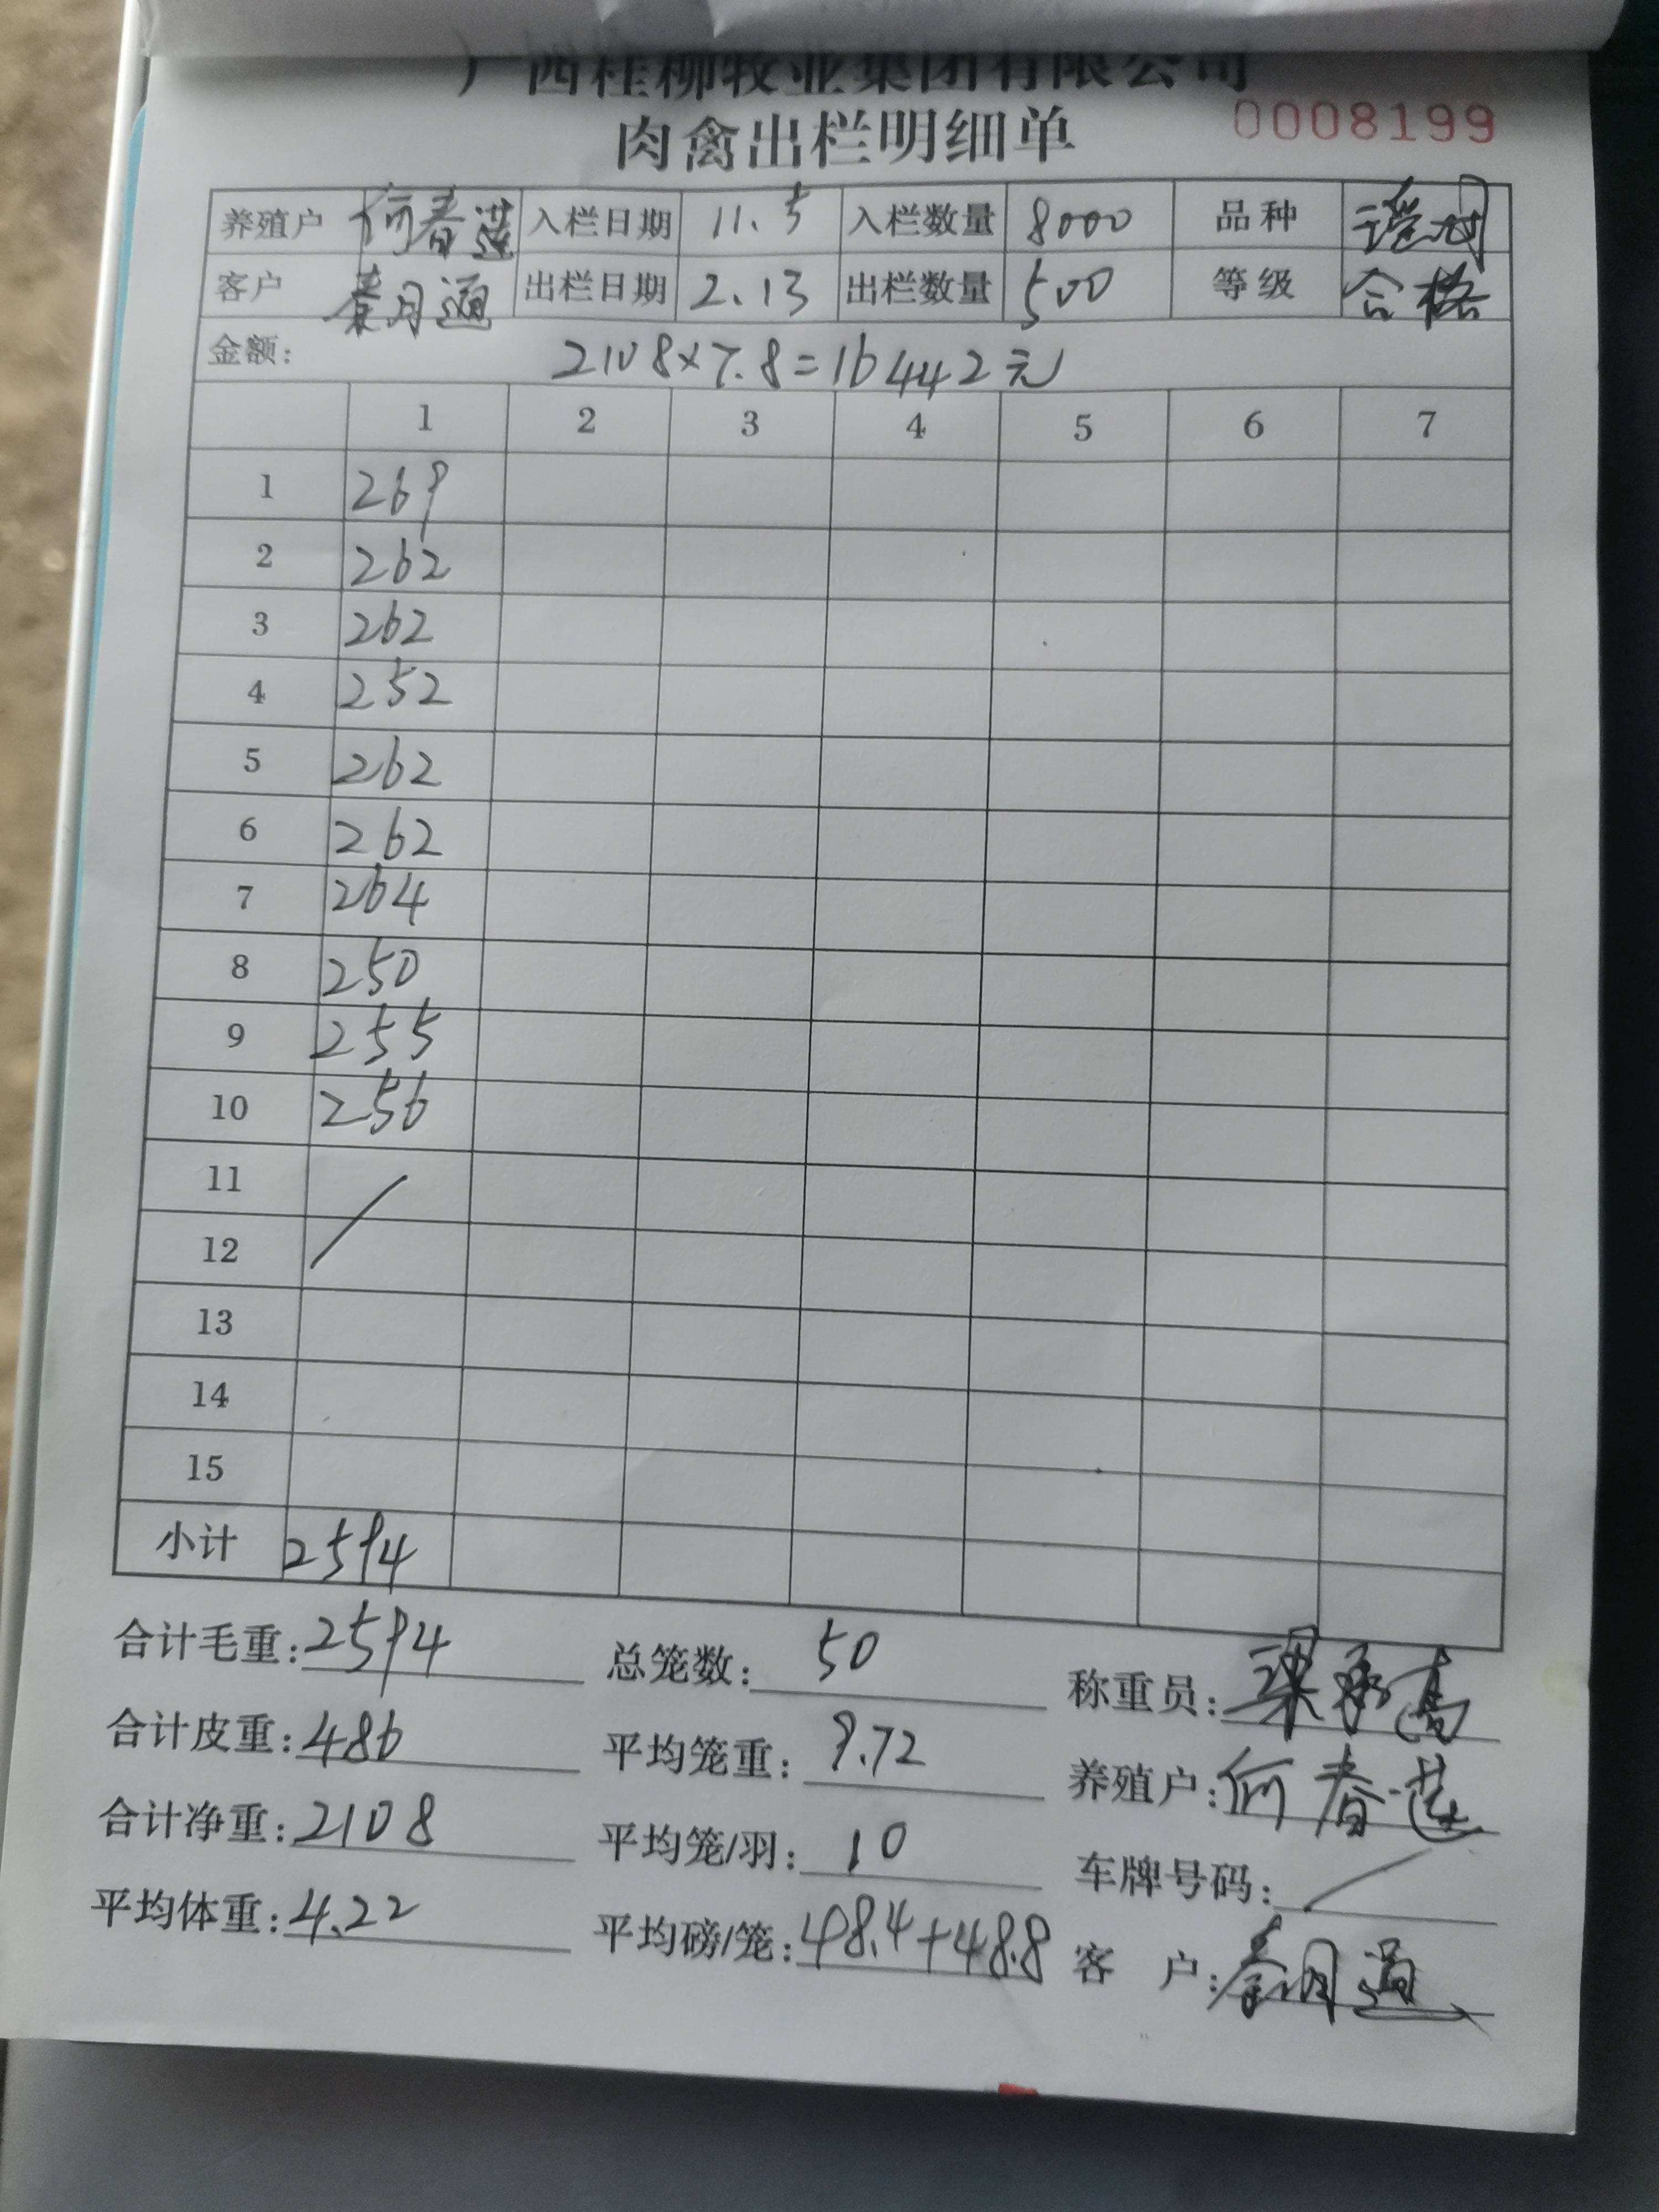 广西桂柳牧业集团有限公司
肉禽出栏明细单 0008199
养殖户 何春莲 入栏日期 11.5 入栏数量 8000 品种
客户 秦月通 出栏日期 2.13 出栏数量 500 等级 合格
金额: 2108×7.8=16442元
1 2 3 4 5 6 7
1 269
2 262
3 262
4 252
5 262
6 262
7 264
8 250
9 255
10 256
11
12
13
14
15
小计 2594
合计毛重:2594 总笼数:50 称重员:
合计皮重:486 平均笼重:9.72 养殖户:何春莲
合计净重:2108 平均笼/羽:10 车牌号码:/
平均体重:4.22 平均磅/笼:48.4+48.8 客 户:秦月通